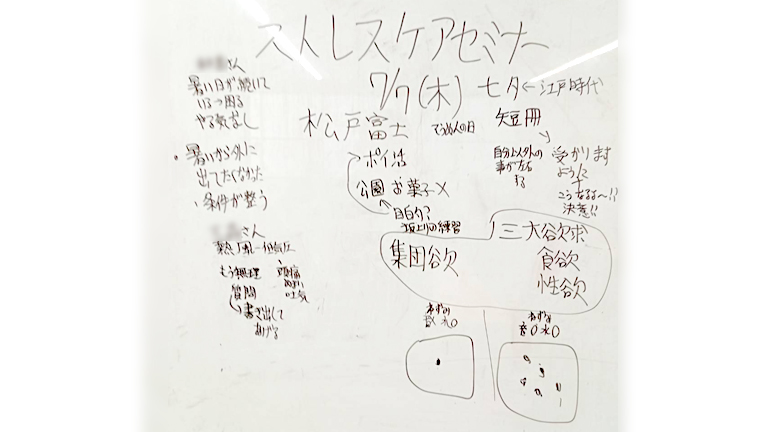 ストレスケアセミナー
7/7(木) 七夕←江戸時代
さん
暑い日が続いて
いろいろ困る
やる気なし
・暑いから外に
出てたくなかった
・条件が整う
さん
もう無理
質問
書き出して
あげる
頭痛
吐気
松戸富士
そうめんの日
ポイ活
公園 お菓子×
目白台?
坂上りの練習
短冊
自分以外の
事が左右
する
受かります
ように
こうなるぞ~!!
決意!!
集団欲
三大欲求
食欲
性欲
ねずみ
ねずみ